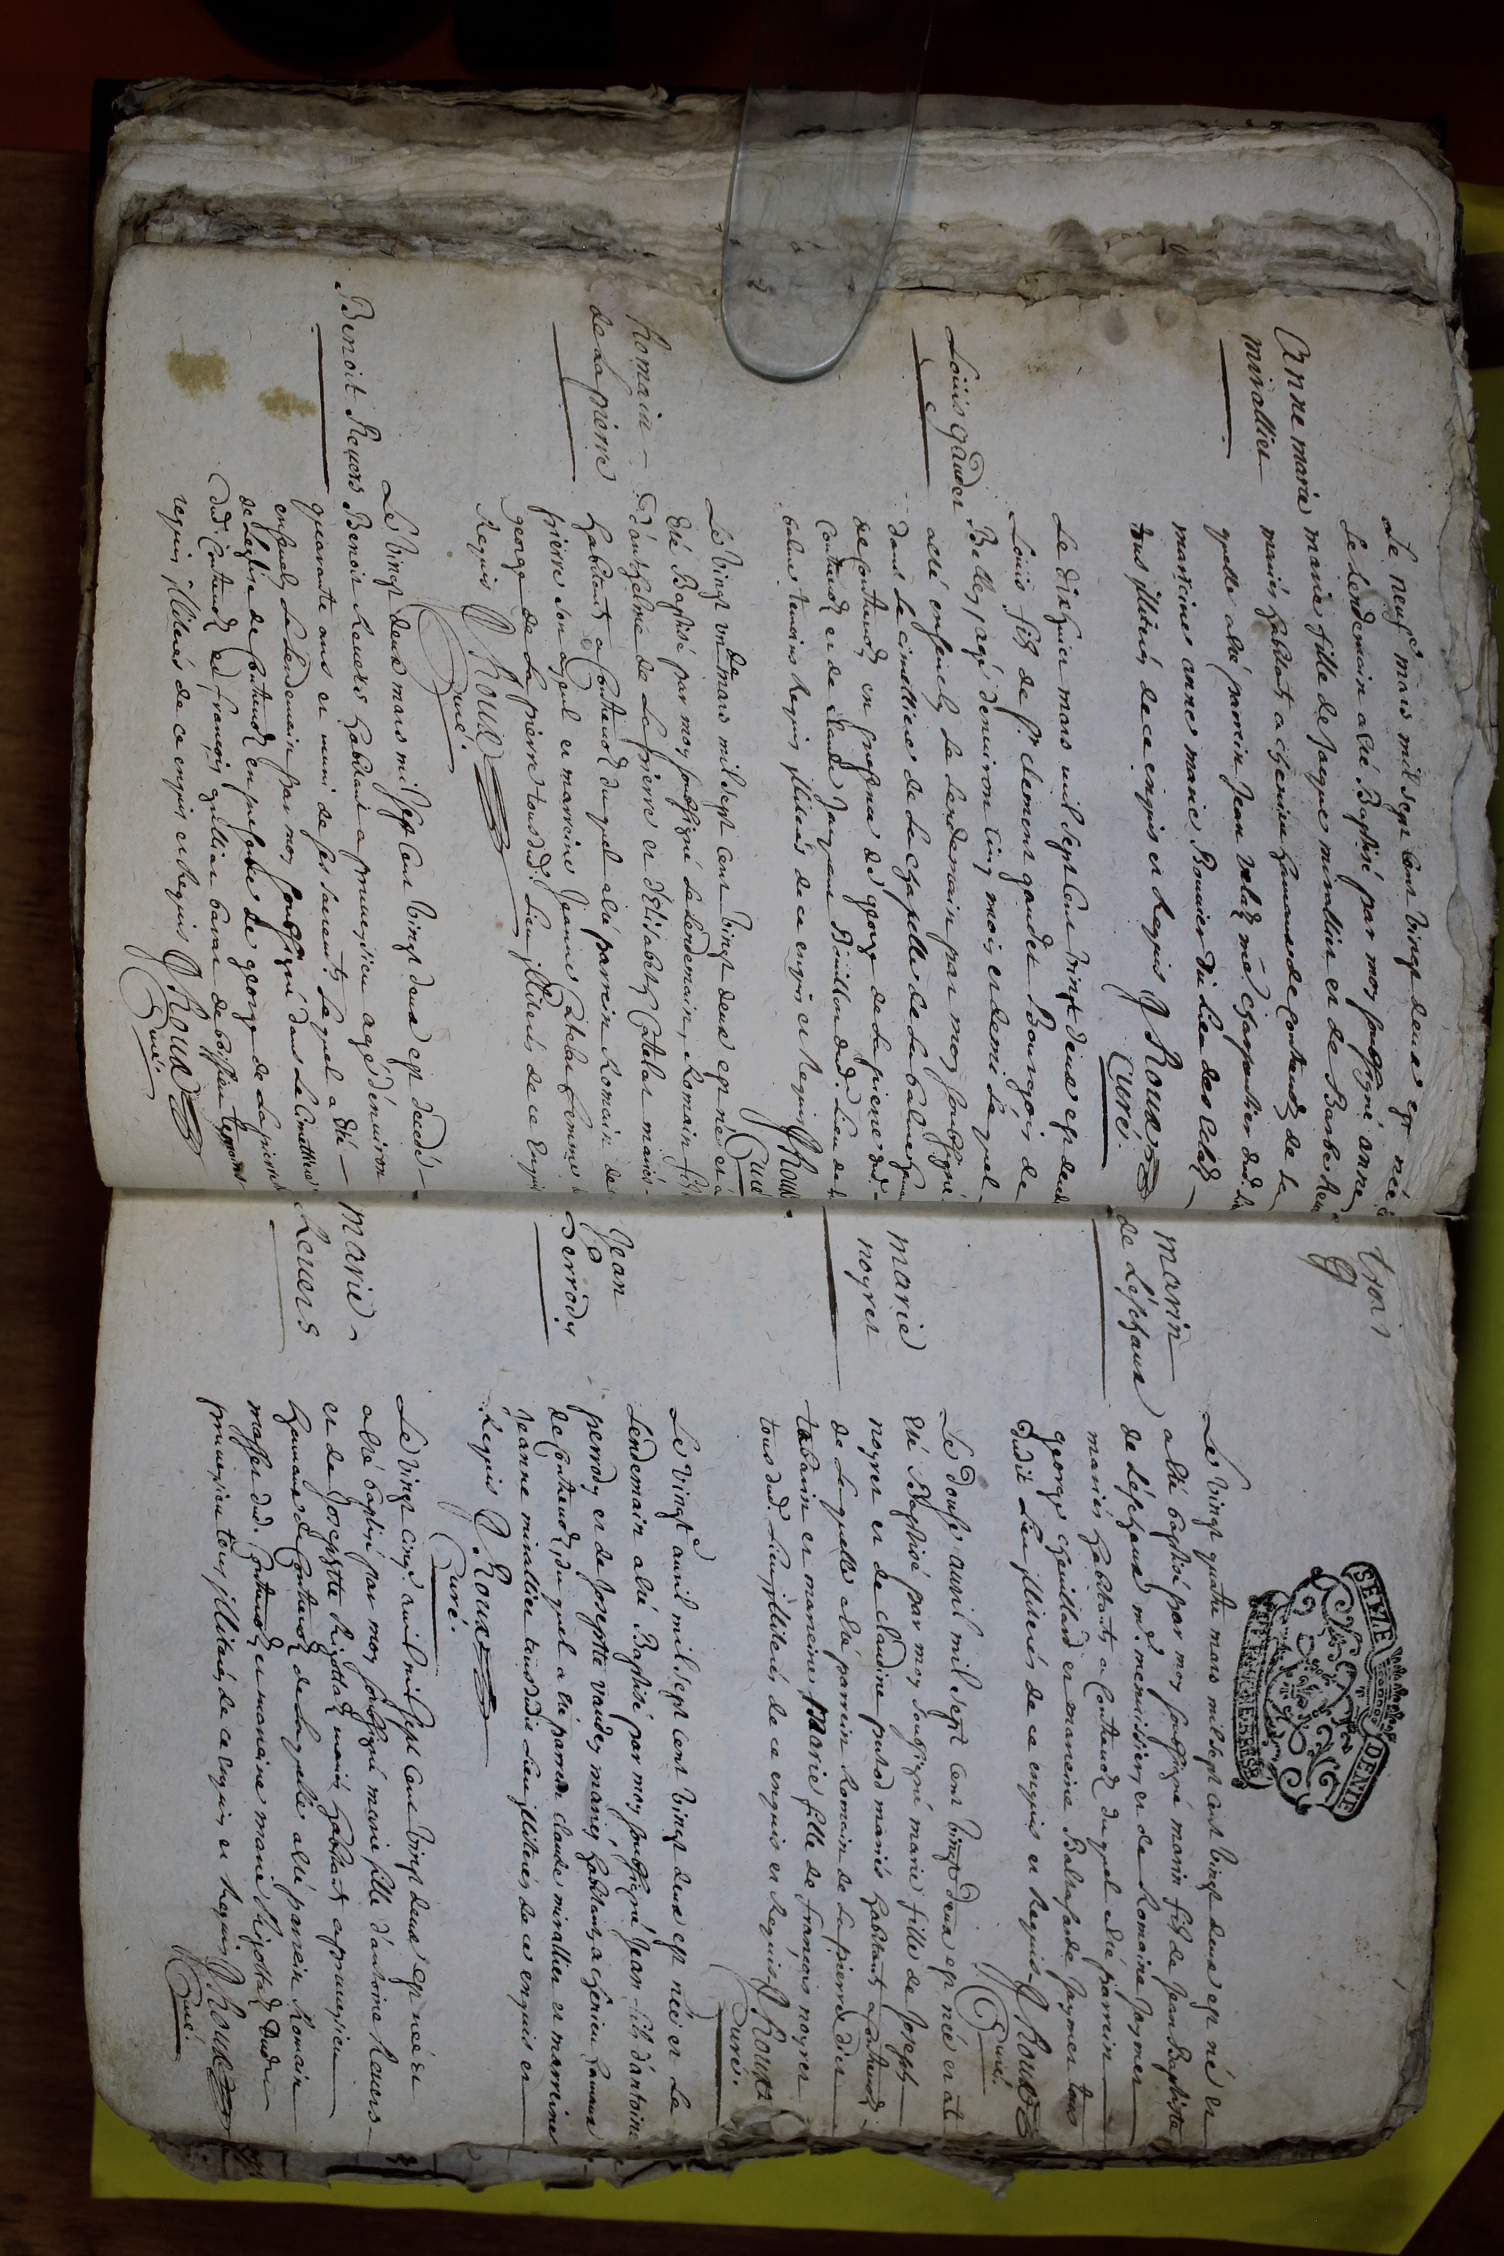 Anne marie
mirallier
Le neuf mars mil sept cent vingt deux est née et
le lendemain a été Baptisé par moy soussigné anne
marie fille de Jaque mirallier et de Barbe
mariés habitants a cherieu hameau de Contenod de la
quelle a été parrein Jean velat me charpentier dud. lieu
marreine anne marie Bouvier du lieu des
tous illiterés de ce enquis et Requis J Roux
Curé.
Louis gauder
Le dixhuit mars mil sept cent vingt deux est decedé
Louis fils de Sr clement gauder Bourgois de
Belley agé d'environ cinq mois et demi lequel
a été enseuely le lendemain par moy soubsigné
dans le cimettiere de la chapelle de la balme
de Contenod en presence de george de la pierre dud.
Contenod et de claude Bouillon dud. lieu de la
balme temoins Requis illiterés de ce enquis et Requis J Roux
Curé
Romain
de La pierre
Le vingt un de mars mil sept cent vingt deux est né et a
Eté Baptisé par moy soussigné le lendemain, Romain fils
d'anthelme de La pierre et d'Elisabeth Catelat mariés
habitants a Contenod duquel a été parrein Romain de la
pierre son ayeul et marreine Jeanne Catelat femme de
george de la pierre tous dud. lieu illiterés de ce Enquis
Requis J Roux
Curé.
Benoit Reuers
Le vingt deux mars mil sept cent vingt deux est decedé
Benoit Reuers habitant a prunesieu agé d'environ
quarante ans et muni de ses sacrements lequel a Eté
enseuely le lendemain par moy soussigné dans le Cimettiere
de l'eglise de Contenod en presence de george de la pierre
dud. Contenod et françois gullier bavoz de boissieu temoins
requis illiterés de ce enquis et Requis J Roux
Curé.
trois
SEIZE DENIE
marin
de Léschaux
Le vingt quatre mars mil sept cent vingt deux est né et
a été baptisé par moy soussigné marin fils de Jean Baptiste
de Léschaux me. menuisier, et de Romaine Jaymer
mariés habitants a Contenod duquel a été parrein
george chevillard et marreine Baltasarde Jaymer tous
dudit lieu illiterés de ce enquis et Requis J Roux
Curé.
marie
noyrer
Le douse auril mil sept cent vingt deux est née et a
Eté Baptisé par moy soussigné marie fille de Joseph
noyrer et de claudine putod mariés habitants a Contenod
de laquelle a été parrein Romain de la pierre dict
tabarin et marreine Marie fille de françois noyrer
tous dud. lieu illiterés de ce enquis et Requis J Roux
Curé.
Jean
perrody
Le vingt auril mil sept cent vingt deux est née et le
lendemain a été Baptisé par moy soussigné Jean fils d'antoine
perrody et de Josephtte vaudey mariés habitants a cherieu hameau
de Contenod, duquel a été parrein claude mirallier et marreine
Jeanne mirallier tous dudit lieu illiterés de ce enquis et
Requis J Roux
Curé.
marie
Reuers
Le vingt cinq auril mil sept cent vingt deux est née et
a été baptisé par moy soussigné marie fille d'antoine Reuers
et de Josephtte Rigottat mariés habitants a prunesieu
hameau de Contenod de laquelle a été parrein Romain
masser dud. Contenod et marreine marie Rigottat dudit
prunesieu tous illiterés de ce Enquis et Requis J Roux
Curé.